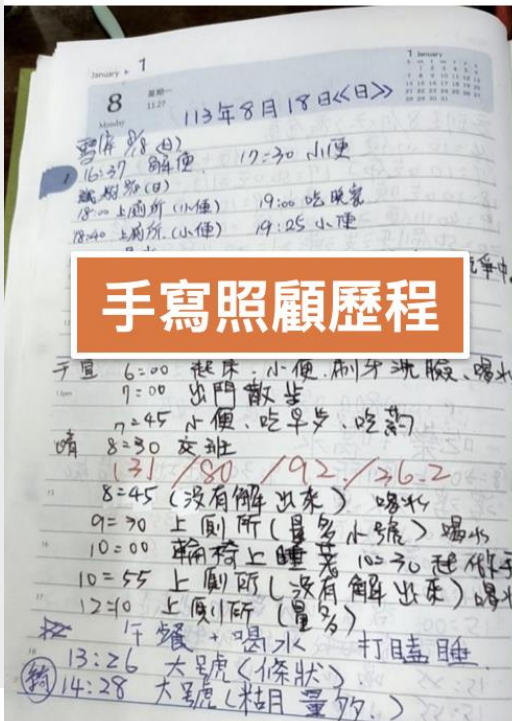 January 1
8
星期一
11.27
Monday
113年8月18日《日》
1 January
8/18 (日)
16:37 解便. 17:30 小便
18:00 上廁所 (小便) 19:00 吃晚餐
18:40 上廁所 (小便) 19:25 小便
手寫照顧歷程
6:00 起床、小便、刷牙洗臉、喝水
7:00 出門散步
7:45 小便、吃早歺、吃葯
晴 8:30 交班
131/80/92/36.2
8:45 (沒有解出來) 喝水
9:30 上廁所 (量多小號) 喝水
10:00 輪椅上睡著 10:30 起
10:55 上廁所 (沒有解出來) 喝水
12:10 上廁所 (量多)
午餐、喝水 打瞌睡
13:26 大號 (條狀)
14:28 大號 (粘且量多)